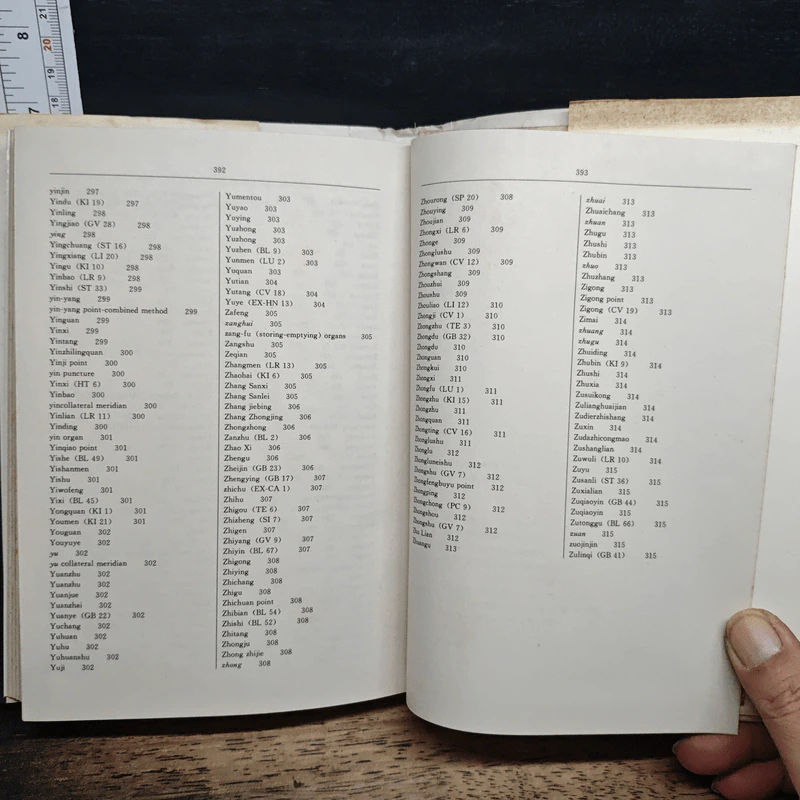 392
yinjin 297
Yindu (KI 19) 297
Yinling 298
Yingjiao (GV 28) 298
ying 298
Yingchuang (ST 16) 298
Yingxiang (LI 20) 298
Yingu (KI 10) 298
Yinbao (LR 9) 298
Yinshi (ST 33) 299
yin-yang 299
yin-yang point-combined method 299
Yinguan 299
Yinxi 299
Yintang 299
Yinzhilingquan 300
Yinji point 300
yin puncture 300
Yinxi (HT 6) 300
Yinbao 300
yincollateral meridian 300
Yinlian (LR 11) 300
Yinding 300
yin organ 301
Yinqiao point 301
Yishe (BL 49) 301
Yishanmen 301
Yishu 301
Yiwofeng 301
Yixi (BL 45) 301
Yongquan (KI 1) 301
Youmen (KI 21) 301
Youguan 302
Youyuye 302
yu 302
yu collateral meridian 302
Yuanzhu 302
Yuanzhu 302
Yuanjue 302
Yuanzhai 302
Yuanye (GB 22) 302
Yuchang 302
Yuhuan 302
Yuhu 302
Yuhuanshu 302
Yuji 302
Yumentou 303
Yuyao 303
Yuying 303
Yuzhong 303
Yuzhong 303
Yuzhen (BL 9) 303
Yunmen (LU 2) 303
Yuquan 303
Yutian 304
Yutang (CV 18) 304
Yuye (EX-HN 13) 304
Zafeng 305
zanghui 305
zang-fu (storing-emptying) organs 305
Zangshu 305
Zeqian 305
Zhangmen (LR 13) 305
Zhaohai (KI 6) 305
Zhang Sanxi 305
Zhang Sanlei 305
Zhang jiebing 306
Zhang Zhongjing 306
Zhongzhong 306
Zanzhu (BL 2) 306
Zhao Xi 306
Zhengu 306
Zheijin (GB 23) 306
Zhengying (GB 17) 307
zhichu (EX-CA 1) 307
Zhihu 307
Zhigou (TE 6) 307
Zhizheng (SI 7) 307
Zhigen 307
Zhiyang (GV 9) 307
Zhiyin (BL 67) 307
Zhigong 308
Zhiying 308
Zhichang 308
Zhigu 308
Zhichuan point 308
Zhibian (BL 54) 308
Zhishi (BL 52) 308
Zhitang 308
Zhongju 308
Zhong zhijie 308
zhong 308
393
Zhourong (SP 20) 308
Zhouying 309
Zhoujian 309
Zhongxi (LR 6) 309
Zhonge 309
Zhonglushu 309
Zhongwan (CV 12) 309
Zhongshang 309
Zhouzhui 309
Zhoushu 309
Zhouliao (LI 12) 310
Zhongji (CV 1) 310
Zhongzhu (TE 3) 310
Zhongdu (GB 32) 310
Zhongdu 310
Zhonguan 310
Zhongkui 310
Zhongxi 311
Zhongfu (LU 1) 311
Zhongzhu (KI 15) 311
Zhongzhu 311
Zhongquan 311
Zhongting (CV 16) 311
Zhonglushu 311
Zhonglu 312
Zhongluneishu 312
Zhongshu (GV 7) 312
Zhongfengbuyu point 312
Zhongping 312
Zhongchong (PC 9) 312
Zhongshou 312
Zhongshu (GV 7) 312
Zhu Lian 312
Zhuangu 313
zhuai 313
Zhuaichang 313
zhuan 313
Zhugu 313
Zhushi 313
Zhubin 313
zhuo 313
Zhuzhang 313
Zigong 313
Zigong point 313
Zigong (CV 19) 313
Zimai 314
zhuang 314
zhugu 314
Zhuiding 314
Zhubin (KI 9) 314
Zhushi 314
Zhuxia 314
Zusuikong 314
Zulianghuaijian 314
Zudierzhishang 314
Zuxin 314
Zudazhicongmao 314
Zushanglian 314
Zuwuli (LR 10) 314
Zuyu 315
Zusanli (ST 36) 315
Zuxialian 315
Zuqiaoyin (GB 44) 315
Zuqiaoyin 315
Zutonggu (BL 66) 315
zuan 315
zuojinjin 315
Zulinqi (GB 41) 315
8
7
21
20
19
18